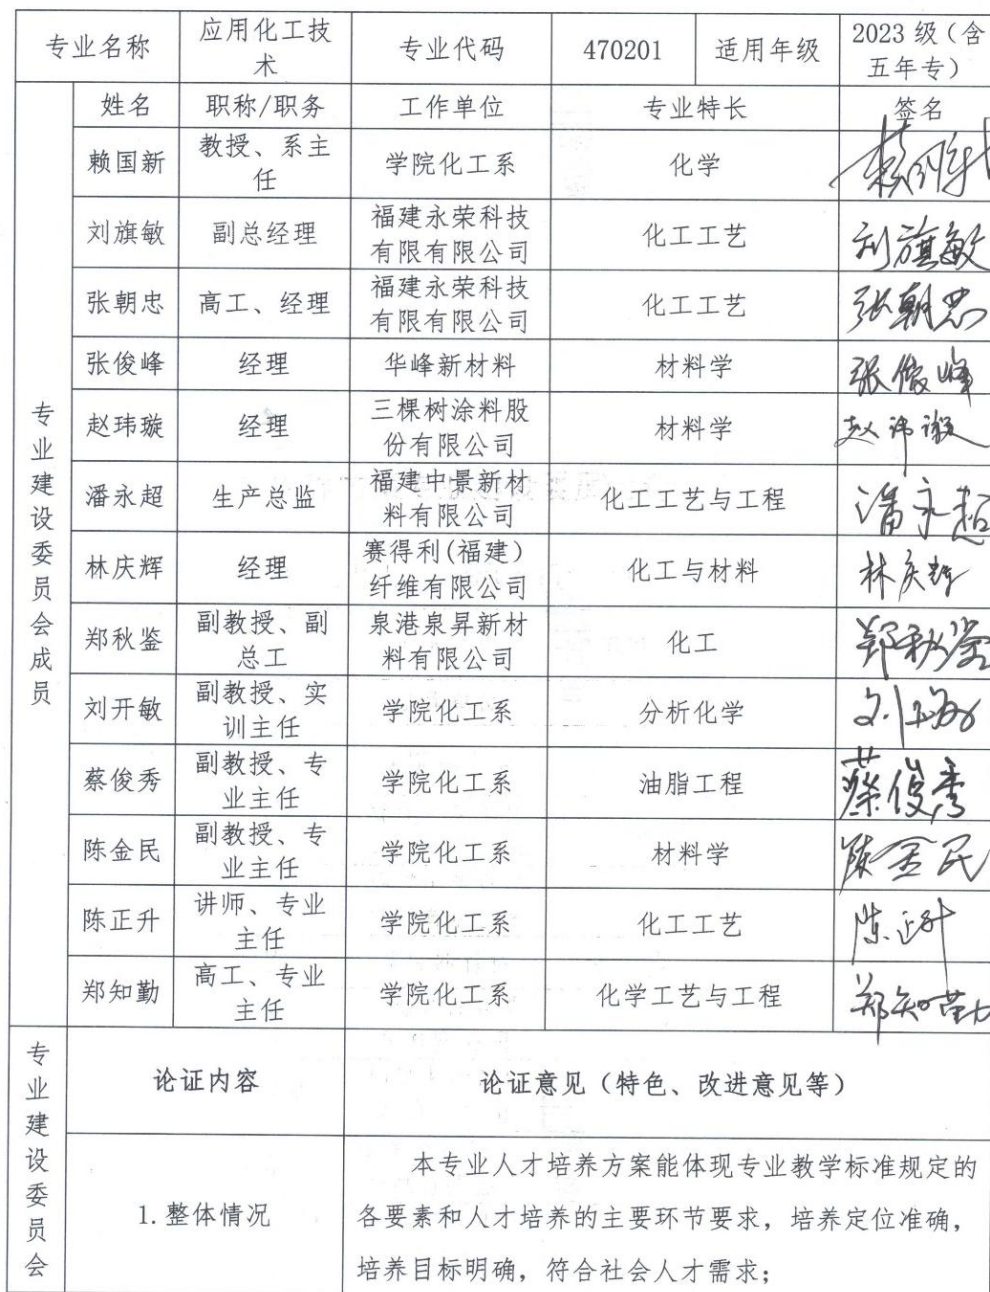 专业名称 应用化工技术 专业代码 470201 适用年级 2023 级（含五年专）
专业建设委员会成员
姓名 职称/职务 工作单位 专业特长 签名
赖国新 教授、系主任 学院化工系 化学
刘旗敏 副总经理 福建永荣科技有限有限公司 化工工艺 刘旗敏
张朝忠 高工、经理 福建永荣科技有限有限公司 化工工艺 张朝忠
张俊峰 经理 华峰新材料 材料学 张俊峰
赵玮璇 经理 三棵树涂料股份有限公司 材料学 赵玮璇
潘永超 生产总监 福建中景新材料有限公司 化工工艺与工程 潘永超
林庆辉 经理 赛得利(福建）纤维有限公司 化工与材料 林庆辉
郑秋鉴 副教授、副总工 泉港泉昇新材料有限公司 化工 郑秋鉴
刘开敏 副教授、实训主任 学院化工系 分析化学
蔡俊秀 副教授、专业主任 学院化工系 油脂工程 蔡俊秀
陈金民 副教授、专业主任 学院化工系 材料学 陈金民
陈正升 讲师、专业主任 学院化工系 化工工艺 陈正升
郑知勤 高工、专业主任 学院化工系 化学工艺与工程 郑知勤
专业建设委员会
论证内容 论证意见（特色、改进意见等）
1.整体情况
本专业人才培养方案能体现专业教学标准规定的
各要素和人才培养的主要环节要求，培养定位准确，
培养目标明确，符合社会人才需求；